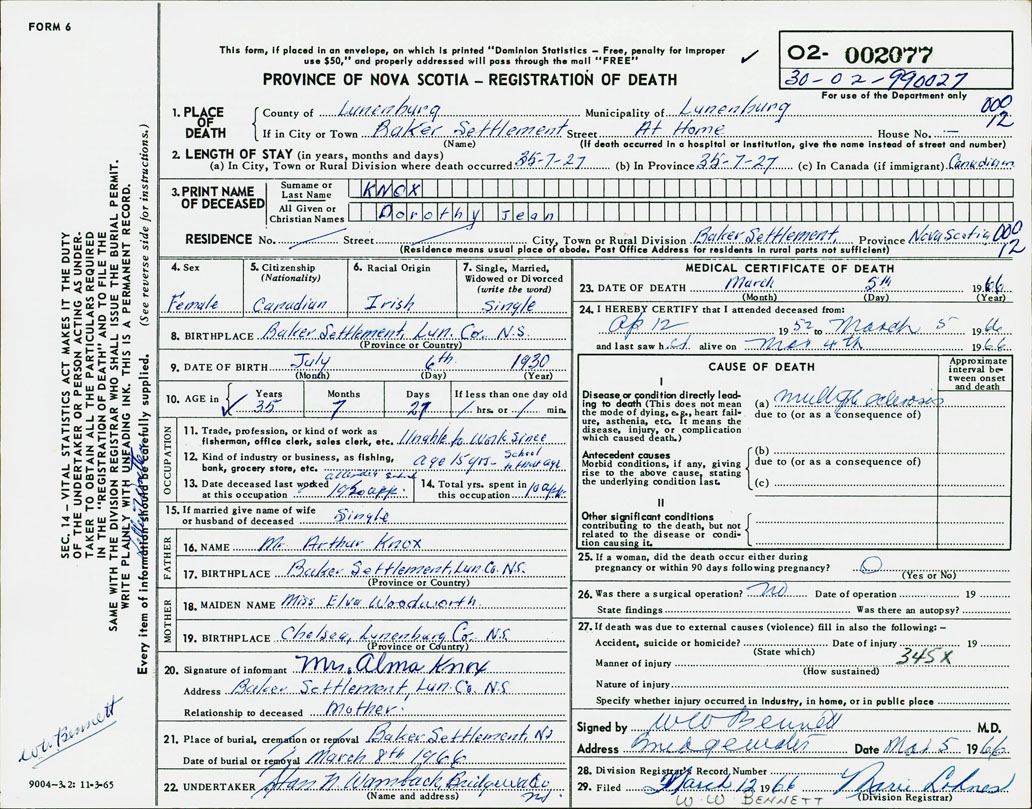 FORM 6
This form, if placed in an envelope, on which is printed "Dominion Statistics – Free, penalty for improper
use $50," and properly addressed will pass through the mail "FREE"
✓
O2- 002077
30-02-990027
For use of the Department only
PROVINCE OF NOVA SCOTIA – REGISTRATION OF DEATH
000
12
1. PLACE OF DEATH
County of Lunenburg Municipality of Lunenburg
If in City or Town Baker Settlement Street At Home House No. —
(Name) (If death occurred in a hospital or institution, give the name instead of street and number)
2. LENGTH OF STAY (in years, months and days)
(a) In City, Town or Rural Division where death occurred 35-7-27 (b) In Province 35-7-27 (c) In Canada (if immigrant) Canadian
3. PRINT NAME OF DECEASED
Surname or Last Name KNOX
All Given or Christian Names Dorothy Jean
RESIDENCE No. Street City, Town or Rural Division Baker Settlement, Province Nova Scotia 000
12
(Residence means usual place of abode. Post Office Address for residents in rural parts not sufficient)
4. Sex
Female
5. Citizenship
(Nationality)
Canadian
6. Racial Origin
Irish
7. Single, Married,
Widowed or Divorced
(write the word)
Single
8. BIRTHPLACE Baker Settlement, Lun. Co. N.S.
(Province or Country)
9. DATE OF BIRTH July 6th 1930
(Month) (Day) (Year)
10. AGE in
Years Months Days If less than one day old
✓ 35 7 27 / hrs. or / min.
OCCUPATION
11. Trade, profession, or kind of work as
fisherman, office clerk, sales clerk, etc. Unable to work since
12. Kind of industry or business, as fishing,
bank, grocery store, etc. age 15 yrs - School
13. Date deceased last worked
at this occupation
14. Total yrs. spent in
this occupation 10 app.
15. If married give name of wife
or husband of deceased Single
FATHER
16. NAME Mr. Arthur Knox
17. BIRTHPLACE Baker Settlement, Lun Co. N.S.
(Province or Country)
MOTHER
18. MAIDEN NAME Miss Elva Woodworth
19. BIRTHPLACE Chelsea, Lunenburg Co. N.S.
(Province or Country)
20. Signature of informant Mrs. Alma Knox
Address Baker Settlement, Lun. Co. N.S
Relationship to deceased Mother.
21. Place of burial, cremation or removal Baker Settlement, NS
Date of burial or removal March 8th 1966
22. UNDERTAKER Bridgewater
(Name and address)
MEDICAL CERTIFICATE OF DEATH
23. DATE OF DEATH March 5th 1966
(Month) (Day) (Year)
24. I HEREBY CERTIFY that I attended deceased from:
Ap 12 1952 to March 5 1966
and last saw h alive on Mar 4th 1966
CAUSE OF DEATH
Approximate
interval be-
tween onset
and death
I
Disease or condition directly lead-
ing to death (This does not mean
the mode of dying, e.g., heart fail-
ure, asthenia, etc. It means the
disease, injury, or complication
which caused death.)
(a) multiple sclerosis
due to (or as a consequence of)
Antecedent causes
Morbid conditions, if any, giving
rise to the above cause, stating
the underlying condition last.
(b)
due to (or as a consequence of)
(c)
II
Other significant conditions
contributing to the death, but not
related to the disease or condi-
tion causing it.
25. If a woman, did the death occur either during
pregnancy or within 90 days following pregnancy? O
(Yes or No)
26. Was there a surgical operation? no Date of operation 19
State findings Was there an autopsy?
27. If death was due to external causes (violence) fill in also the following: –
Accident, suicide or homicide? Date of injury 19
(State which)
Manner of injury 345X
(How sustained)
Nature of injury
Specify whether injury occurred in Industry, in home, or in public place
Signed by W W Bennett M.D.
Address Bridgewater Date Mar 5 1966
28. Division Registrar's Record Number
29. Filed March 12 1966 Marie
(Division Registrar)
W. W BENNETT
SEC. 14 – VITAL STATISTICS ACT MAKES IT THE DUTY
OF THE UNDERTAKER OR PERSON ACTING AS UNDER-
TAKER TO OBTAIN ALL THE PARTICULARS REQUIRED
IN THE "REGISTRATION OF DEATH" AND TO FILE THE
SAME WITH THE DIVISION REGISTRAR WHO SHALL ISSUE THE BURIAL PERMIT.
WRITE PLAINLY WITH UNFADING INK. THIS IS A PERMANENT RECORD.
Every item of information should be carefully supplied. (See reverse side for instructions.)
W W Bennett
9004–3.2: 11-3-65